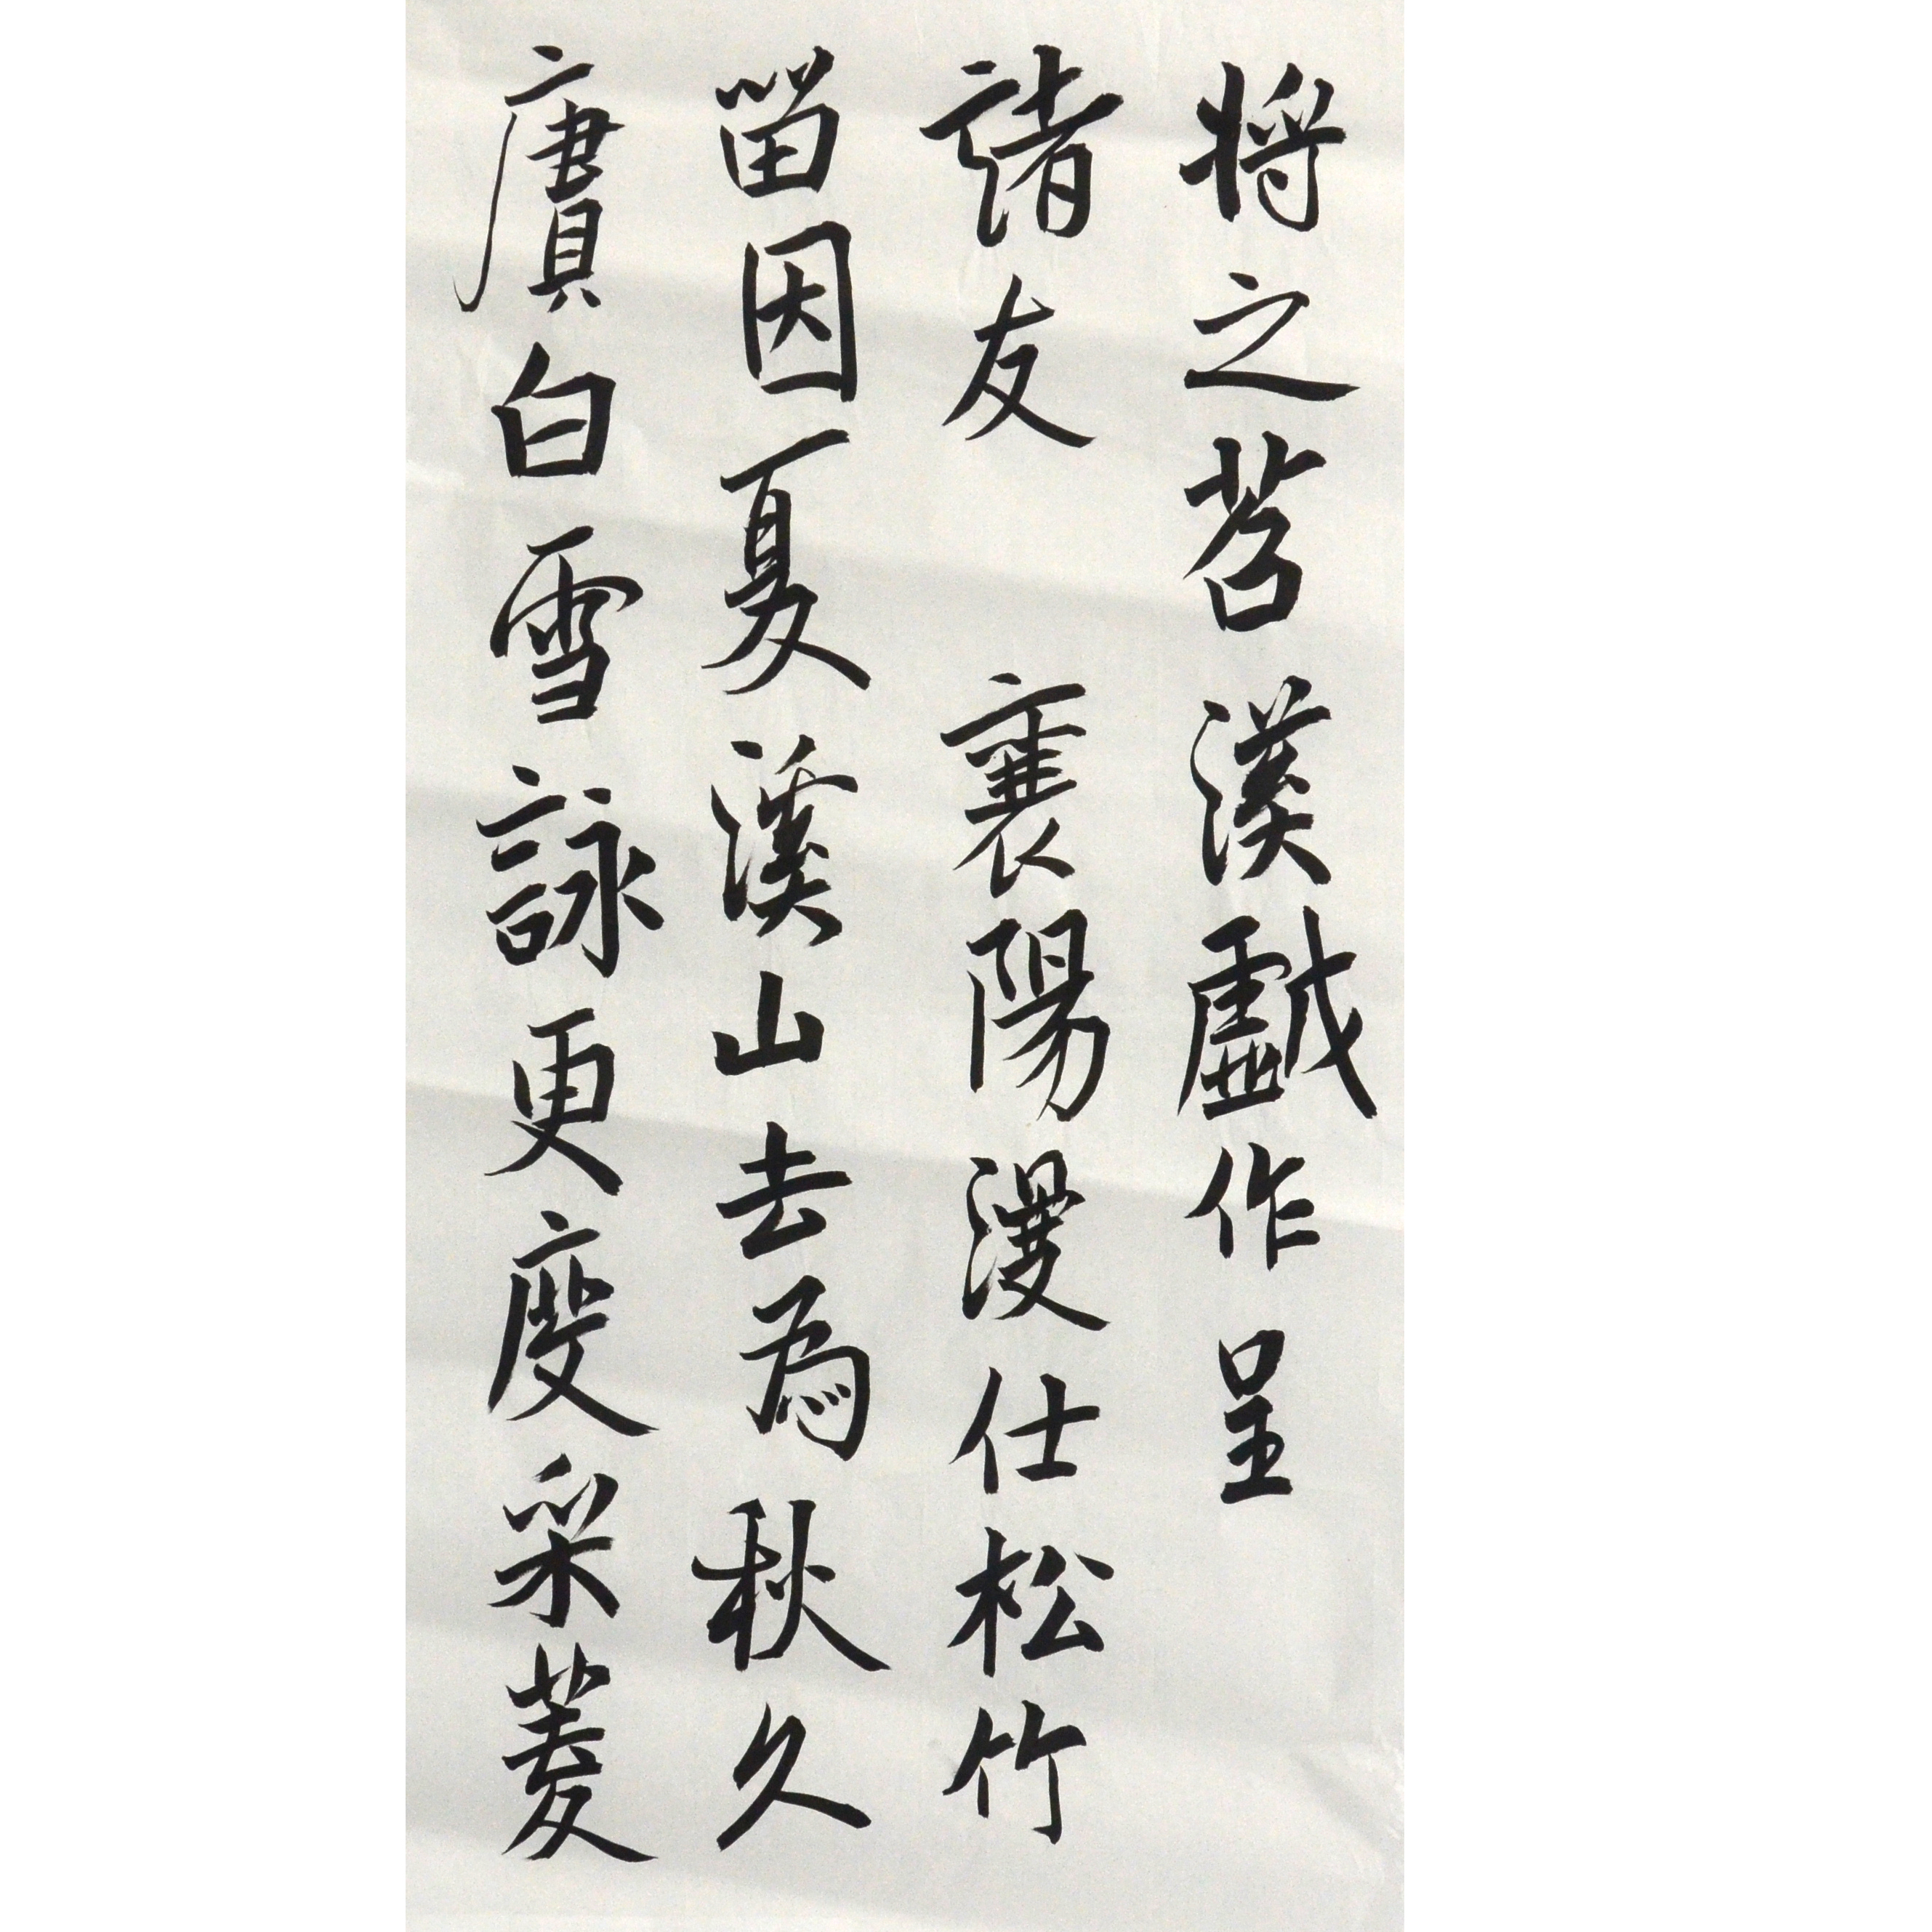 将之苕溪戲作呈
諸友 襄陽漫仕松竹
留因夏溪山去為秋久
賡白雪詠更度采菱